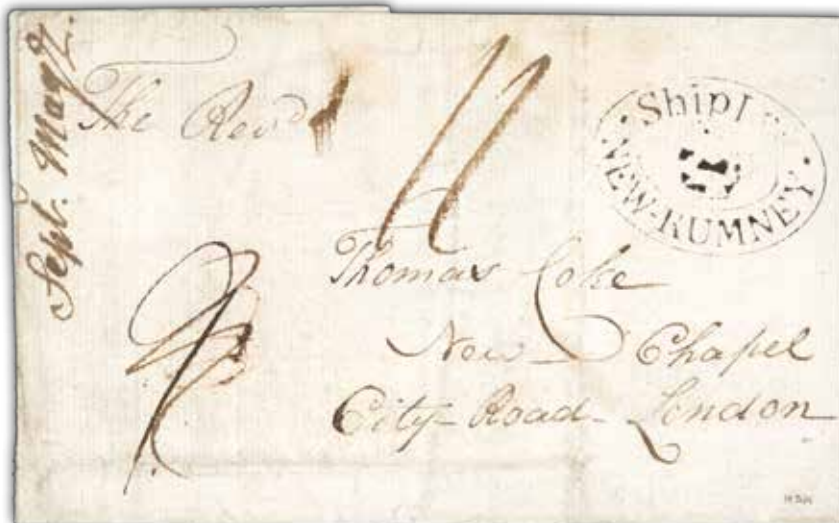 Sept. Magz.
The Revd
11
Ship L
NEW-RUMNEY
Thomas Coke
New Chapel
City-Road-London